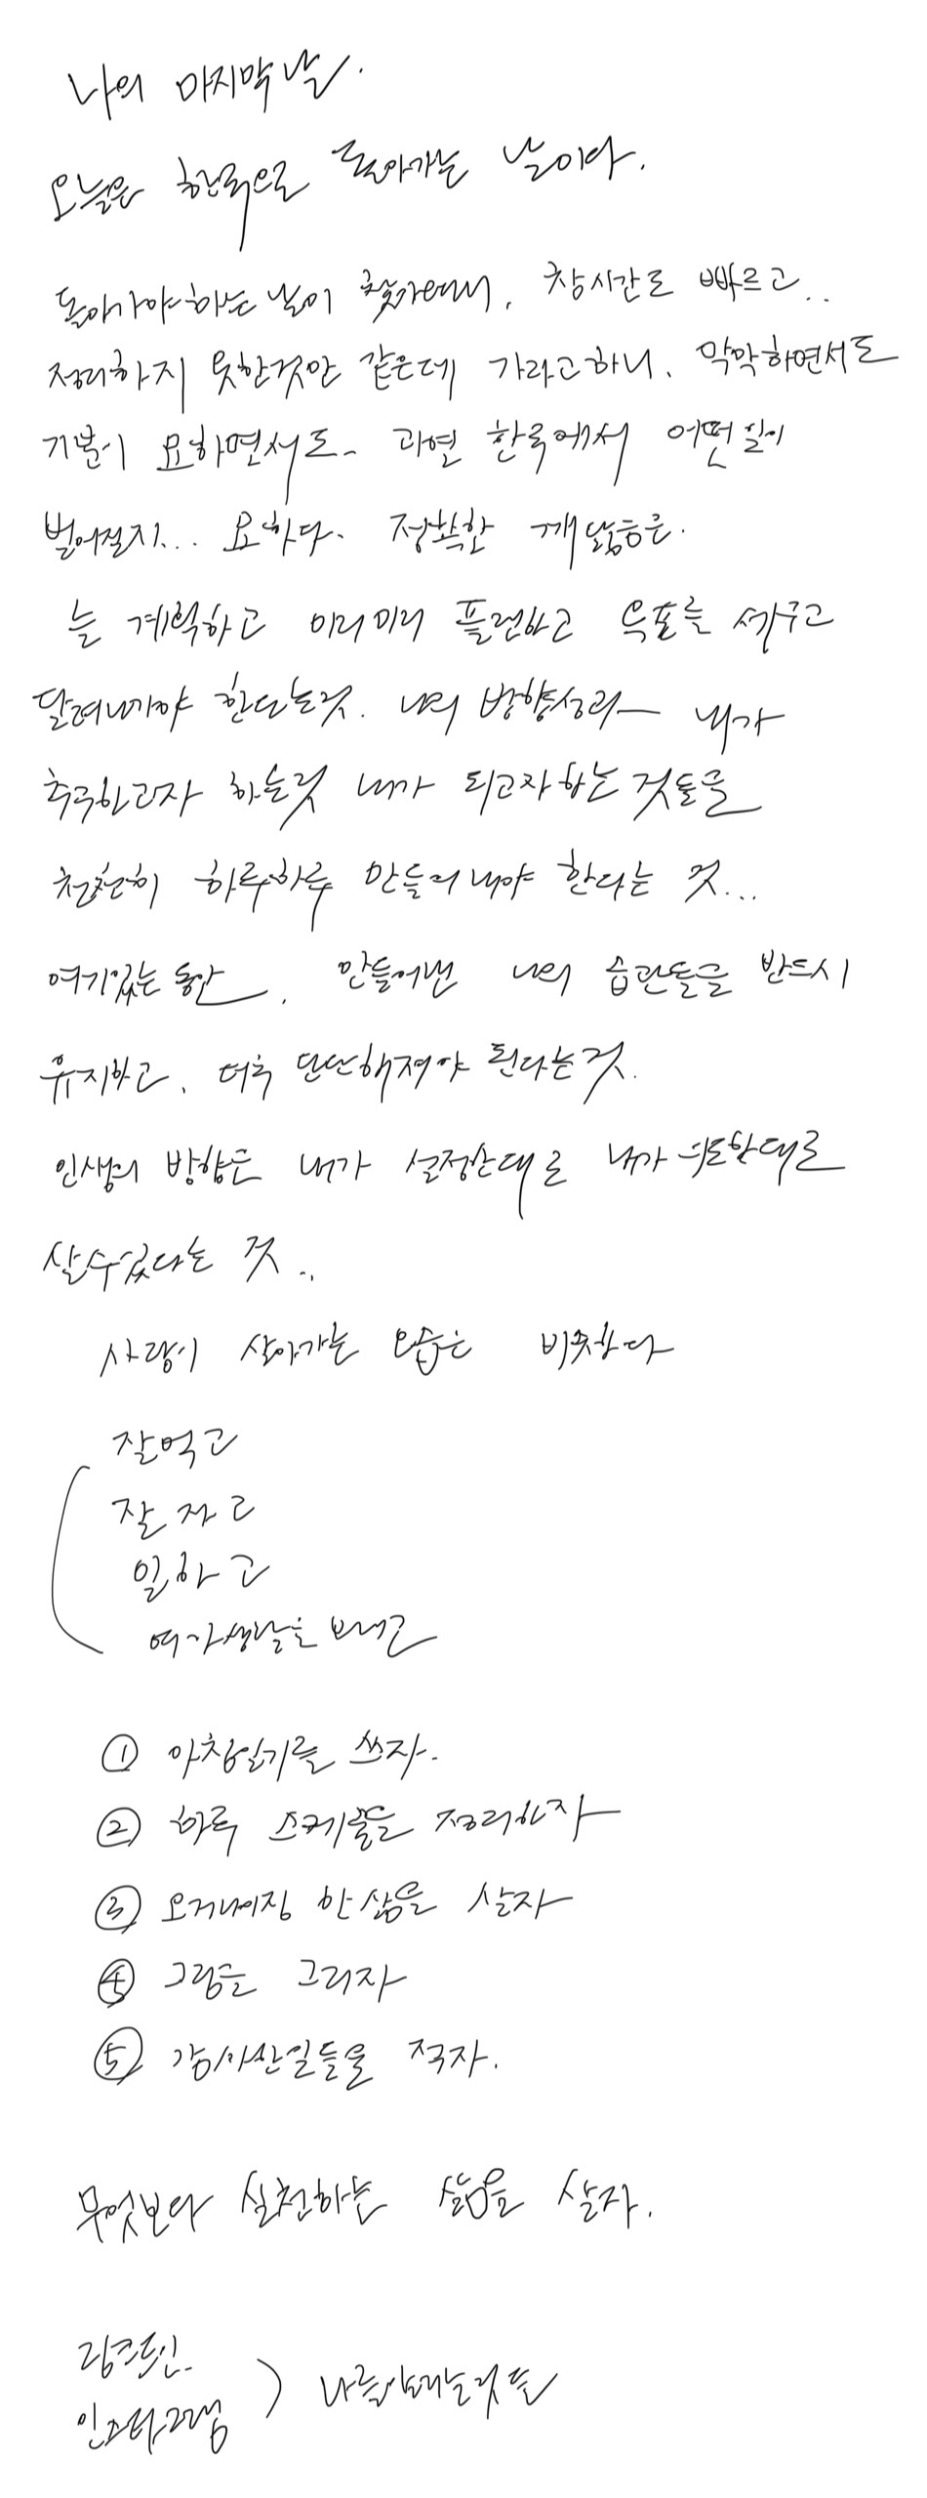 나의 마지막 날.
오늘은 한국으로 돌아가는 날이다.
돌아가야하는 날이 찾아오니, 참 시간도 빠르고..
정리하지 못한것만 같은데 가라고하니, 막막하면서도
기분이 묘하면서도.. 과연 한국에서 어떤일이
벌어질지... 묘하다. 정확한 깨달음은.
늘 계획하고 미리미리 플랜하고 목표를 세우고
달려나가야 한다는것. 나의 방향성과 내가
추구하고자 하는것 내가 되고자하는 것들을
천천히 하루하루 만들어내야 한다는 것...
여기있는 동안, 만들어낸 나의 습관들을 반드시
유지하고, 더욱 단단해져야 된다는것.
인생의 방향은 내가 설정한대로 내가 의도한대로
살수있다는 것...
사람이 살아가는 모습은 비슷하다
잘먹고
잘자고
일하고
여가생활을 보내고
① 아침일기를 쓰자.
② 하루 스케줄을 정리하자
③ 오거나이징 한 삶을 살자
④ 그림을 그리자
⑤ 감사한일들을 적자.
무엇보다 실천하는 삶을 살자.
링크드인.
인스타그램 ) 나를